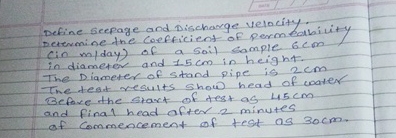 Define Seepage and Discharge velocity.
Determine the Coefficient of permeability
(in m/day) of a soil sample 6cm
in diameter and 15cm in height.
The Diameter of stand pipe is 2cm
The test results show head of water
Before the start of test as 45cm
and final head after 2 minutes
of Commencement of test as 30cm.